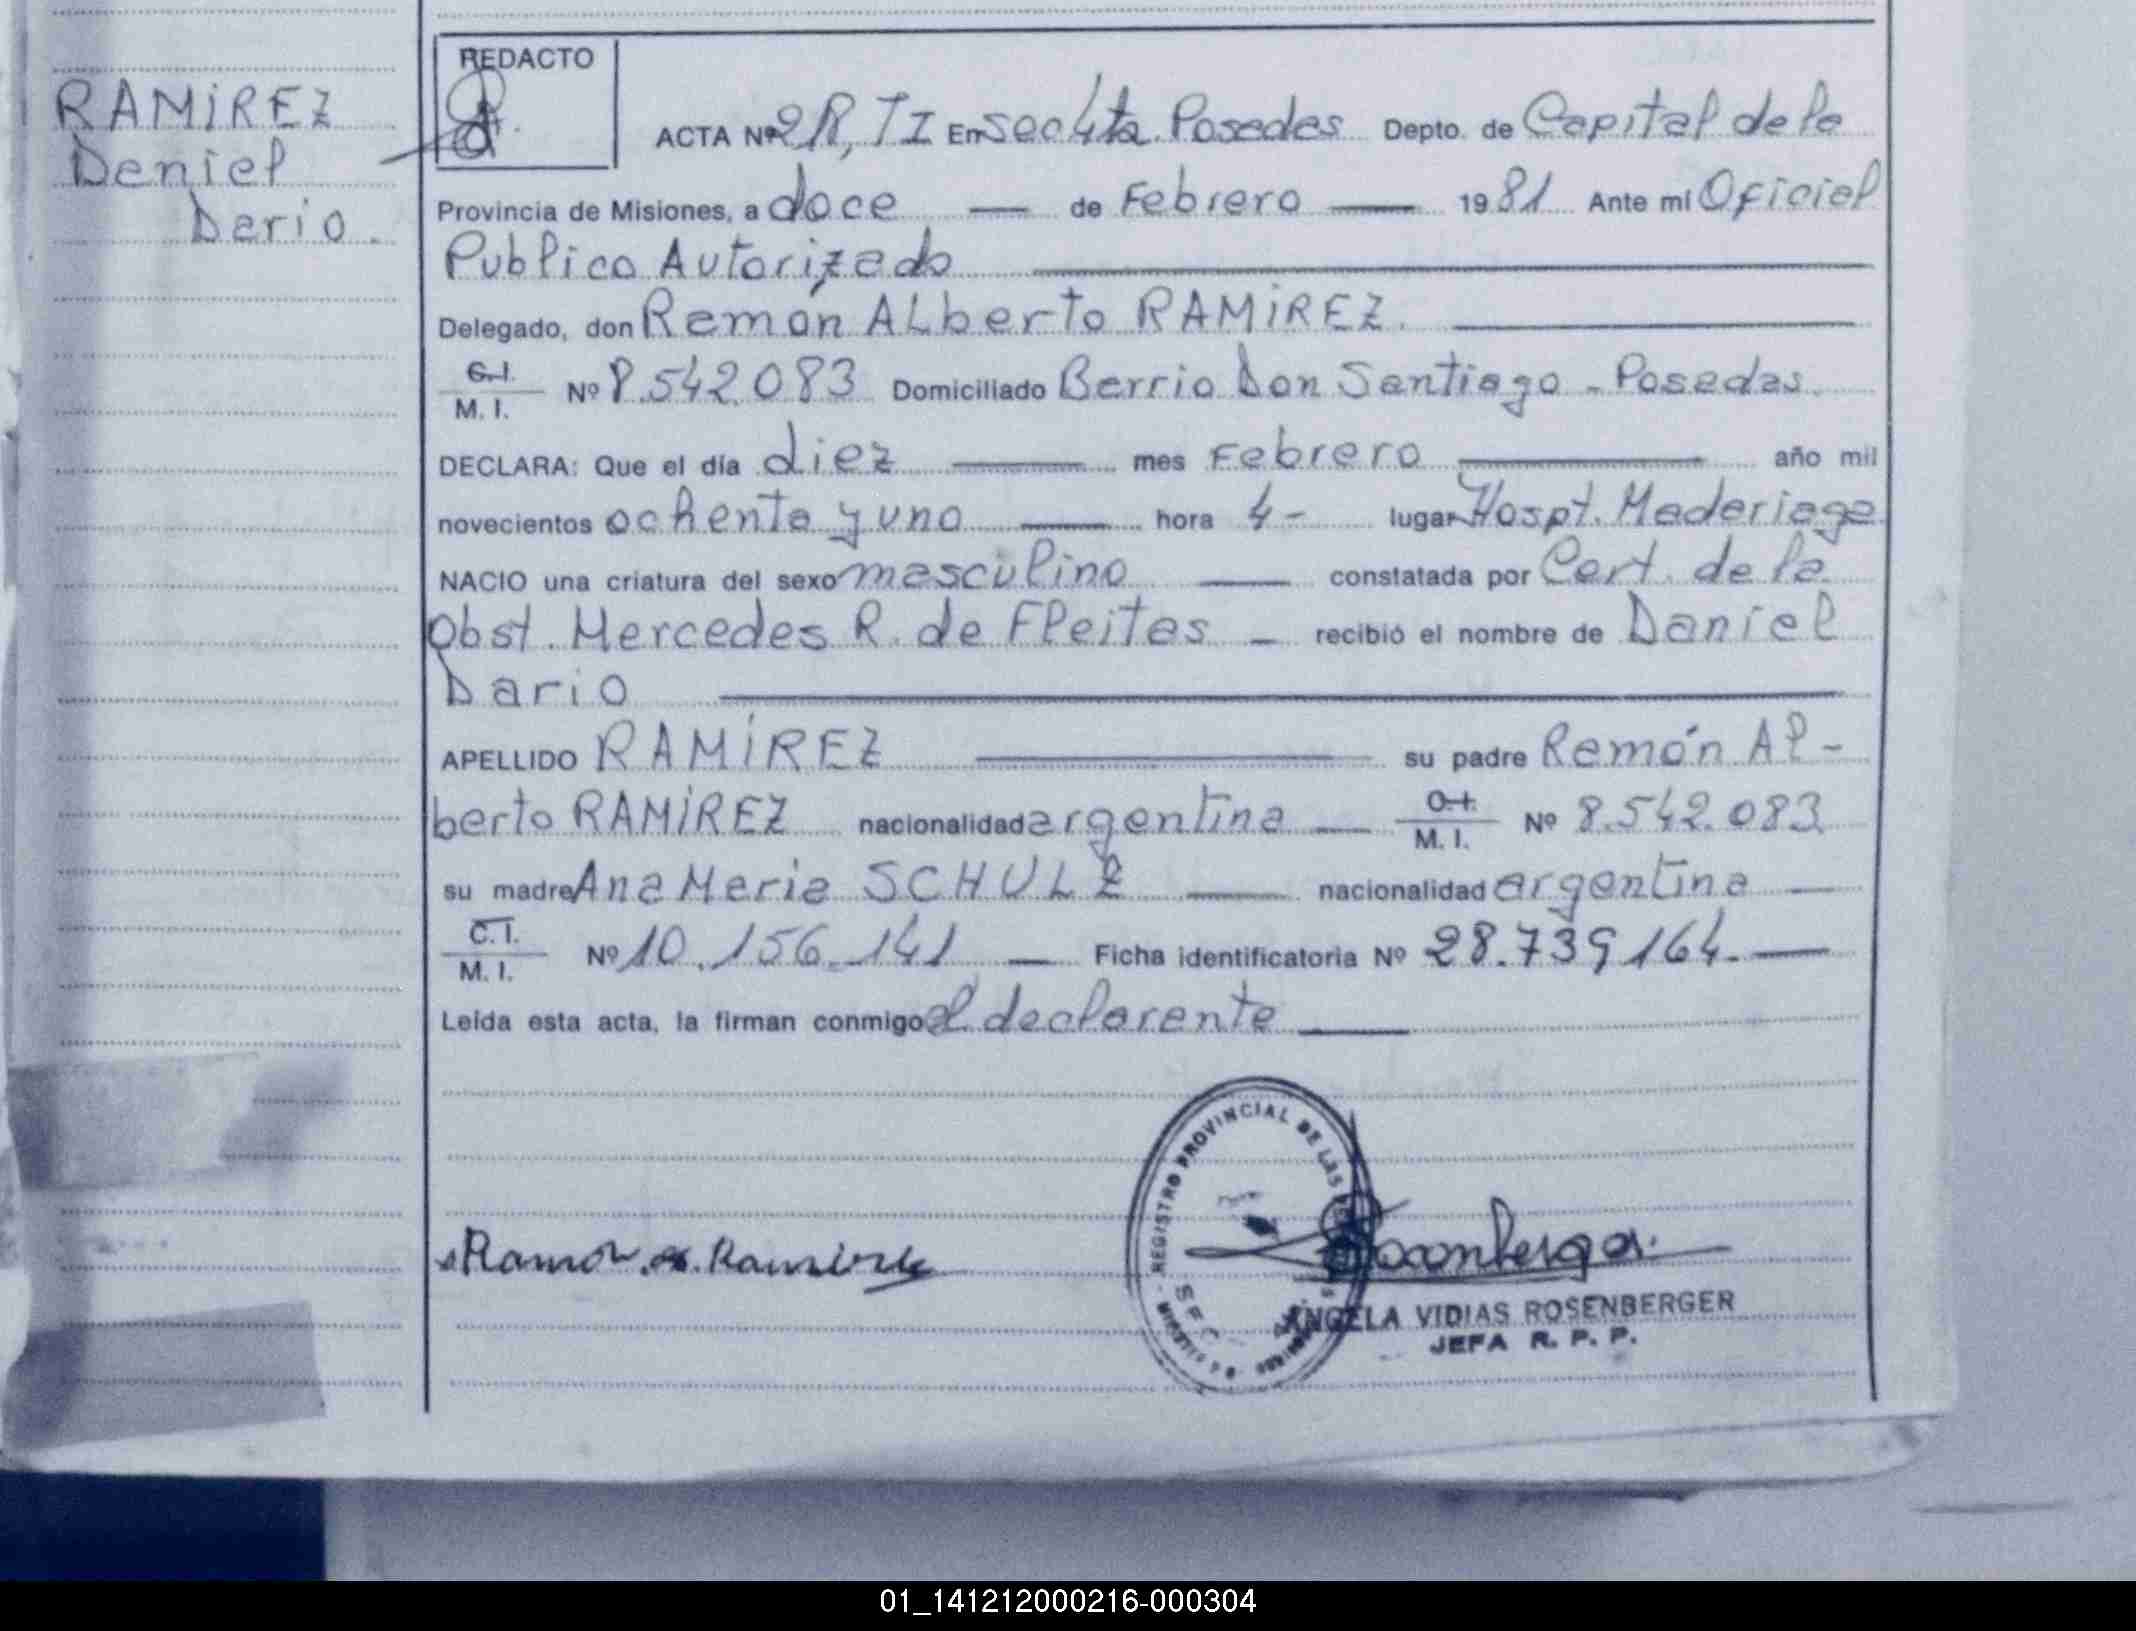 RAMIREZ
Daniel
Dario.
REDACTO
ACTA Nº 2R, TI En Secc 4ta Posadas Depto. de Capital de la
Provincia de Misiones, a doce — de Febrero — 1981 Ante mí Oficial
Publico Autorizado
Delegado, don Ramón ALberto RAMIREZ.
C.I.
M. I. Nº 8.542.083 Domiciliado Barrio Don Santiago - Posadas.
DECLARA: Que el día diez — mes Febrero — año mil
novecientos ochenta y uno — hora 4 - lugar Hospt. Madariaga
NACIO una criatura del sexo masculino — constatada por Cert. de la
Obst. Mercedes R. de Fleitas — recibió el nombre de Daniel
Dario
APELLIDO RAMÍREZ — su padre Ramón Al-
berto RAMÍREZ nacionalidad argentina — C.I.
M. I. Nº 8.542.083
su madre Ana Maria SCHULZ — nacionalidad argentina —
C.I.
M. I. Nº 10.156.141 — Ficha identificatoria Nº 28.739164. —
Leída esta acta, la firman conmigo el declarante —
REGISTRO PROVINCIAL DE LAS
Ramon A. Ramirez
ANGELA VIDIAS ROSENBERGER
JEFA R. P. P.
01_141212000216-000304